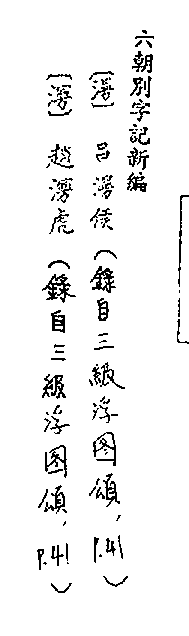 六朝別字記新編
〔澷〕 呂澷侯（錄自三級浮图頌，P.41）
〔澷〕 趙澷虎（錄自三級浮图頌，P.41）